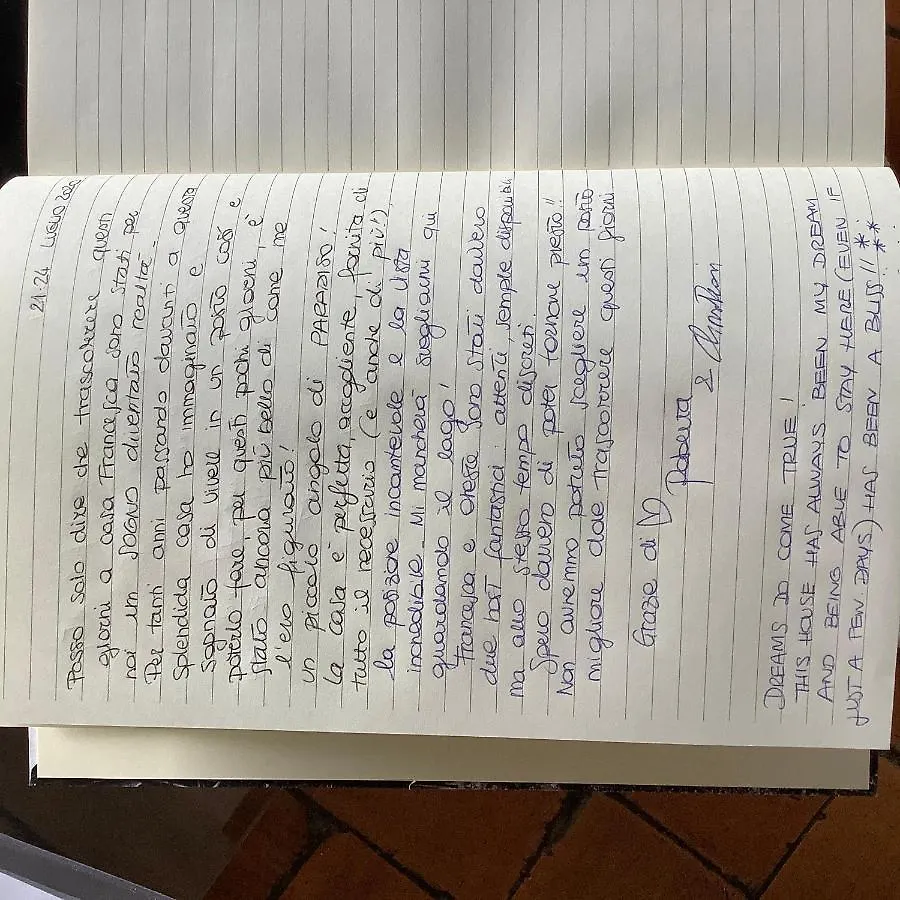 21-24 LUGLIO 2020
Posso solo dire che trascorrere questi
giorni a casa Francesca sono stati per
noi un SOGNO diventato realtà.
Per tanti anni passando davanti a questa
splendida casa ho immaginato e
sognato di vivere in un posto così e
poterlo fare, per questi pochi giorni, è
stato ancora più bello di come me
l'ero figurato!
un piccolo angolo di PARADISO!
La casa è perfetta, accogliente, fornita di
tutto il necessario (e anche di più!),
la posizione incantevole e la vista
incredibile. Mi mancherà svegliarmi qui
guardando il lago!
Francesca e Oreste sono stati davvero
due host fantastici: attenti, sempre disponibili
ma allo stesso tempo discreti.
Spero davvero di poter tornare presto!!
Non avremmo potuto scegliere un posto
migliore dove trascorrere questi giorni
Grazie di ♡
Roberta
& Christian
DREAMS DO COME TRUE!
THIS HOUSE HAS ALWAYS BEEN MY DREAM
AND BEING ABLE TO STAY HERE (EVEN IF
JUST A FEW DAYS) HAS BEEN A BLISS!! ***